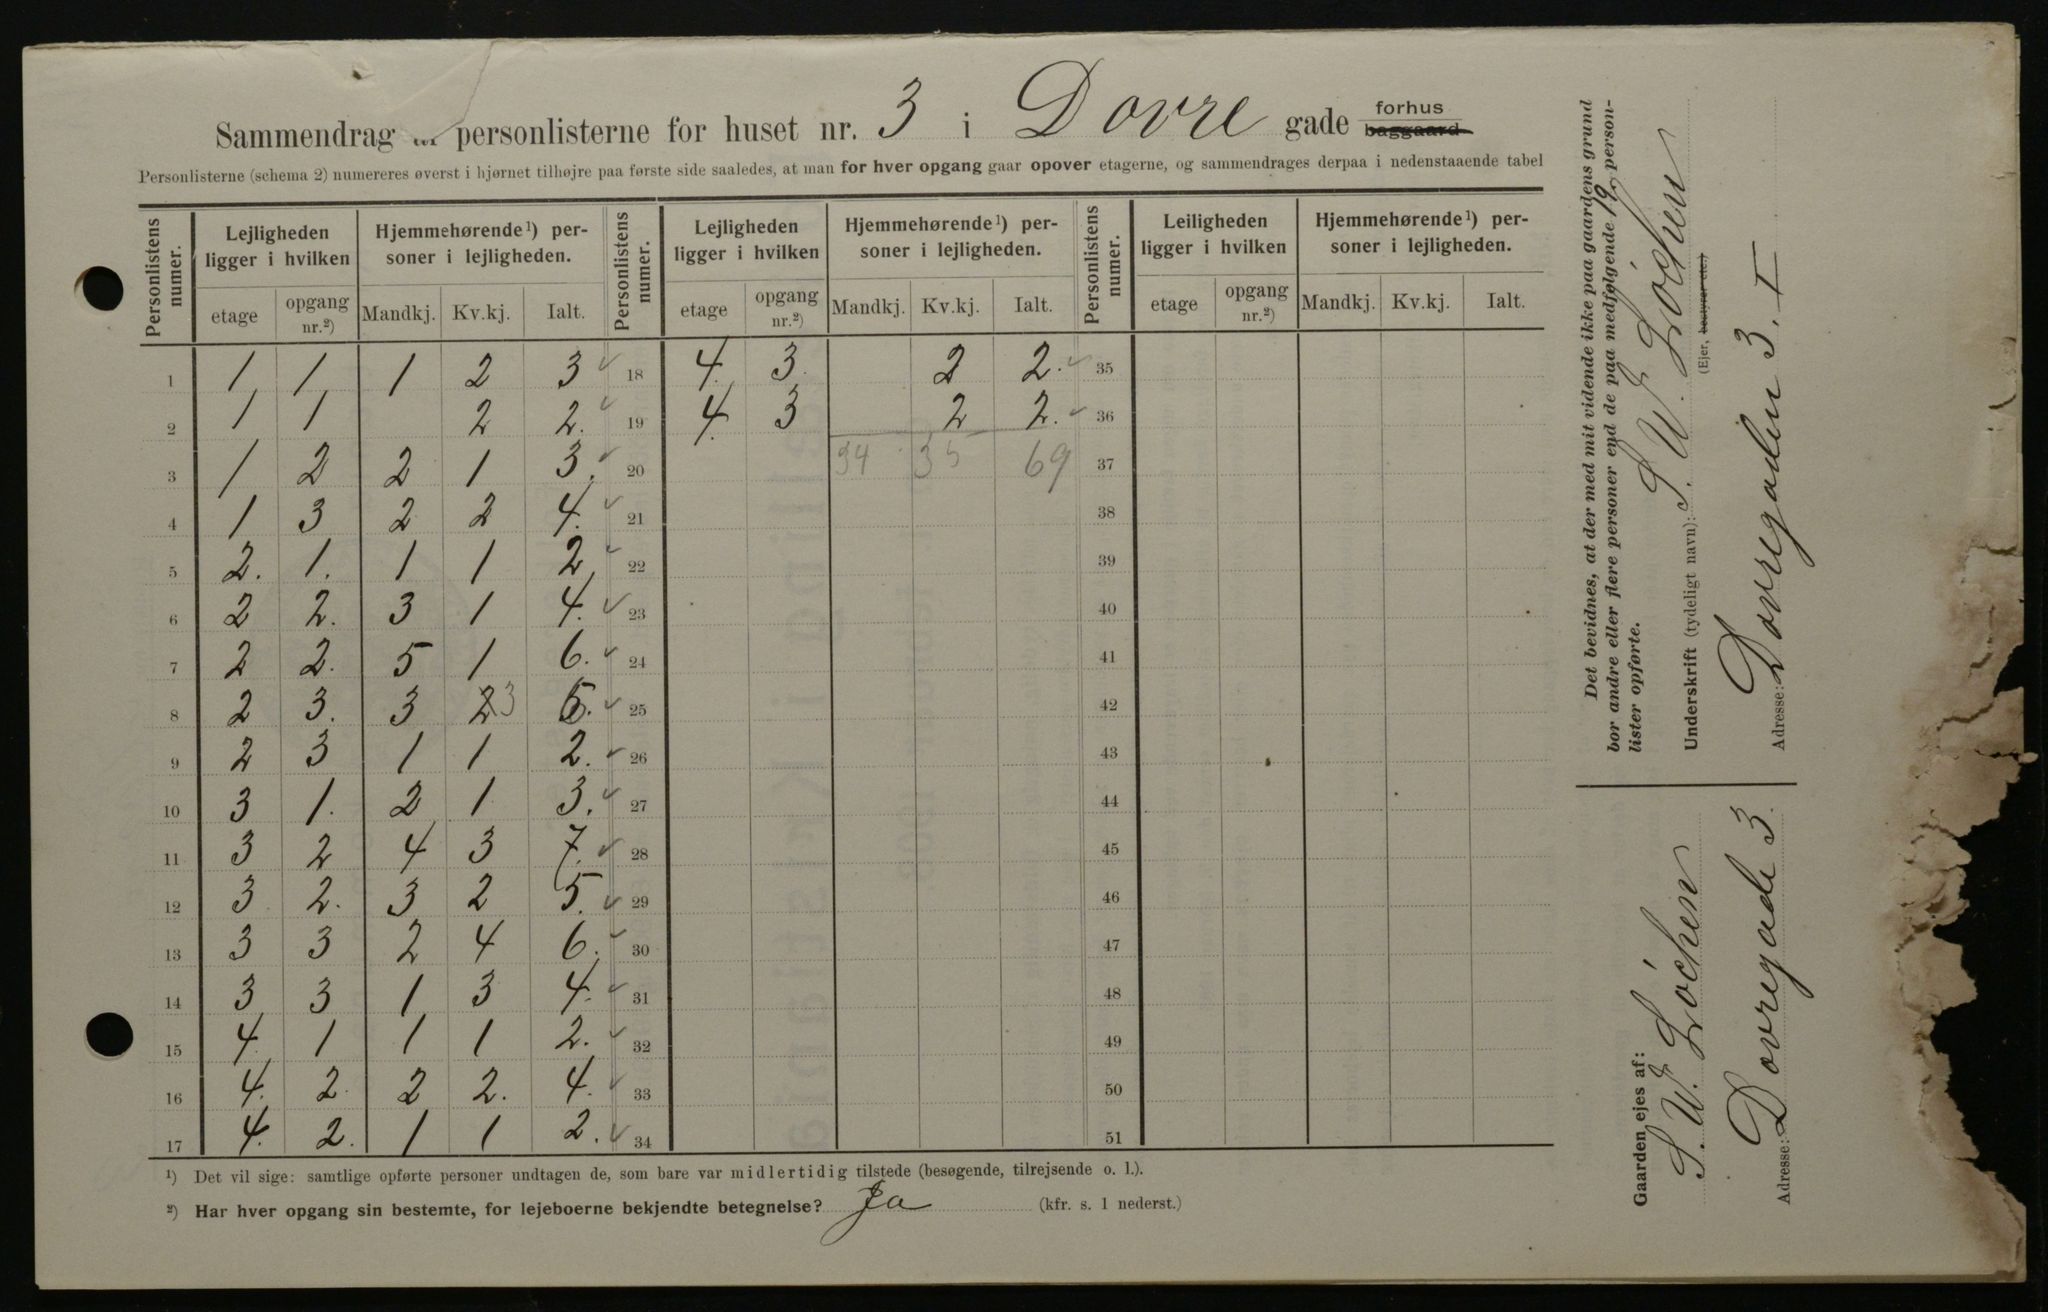 Sammendrag personlisterne for huset nr. 3 i Dovre gade forhus baggaard
Personlisterne (schema 2) numereres øverst i hjørnet tilhøjre paa første side saaledes, at man for hver opgang gaar opover etagerne, og sammendrages derpaa i nedenstaaende tabel
Personlistens numer. | Lejligheden ligger i hvilken | Hjemmehørende ¹) personer i lejligheden. | Personlistens numer. | Lejligheden ligger i hvilken | Hjemmehørende ¹) personer i lejligheden. | Personlistens numer. | Leiligheden ligger i hvilken | Hjemmehørende ¹) personer i lejligheden.
etage | opgang nr.²) | Mandkj. | Kv.kj. | Ialt. | etage | opgang nr.²) | Mandkj. | Kv.kj. | Ialt. | etage | opgang nr.²) | Mandkj. | Kv.kj. | Ialt.
1 | 1 | 1 | 1 | 2 | 3 | 18 | 4. | 3. | | 2 | 2. | 35
2 | 1 | 1 | | 2 | 2. | 19 | 4. | 3 | | 2 | 2. | 36
3 | 1 | 2 | 2 | 1 | 3. | 20 | | | 34 | 35 | 69 | 37
4 | 1 | 3 | 2 | 2 | 4. | 21 | 38
5 | 2. | 1. | 1 | 1 | 2. | 22 | 39
6 | 2 | 2. | 3 | 1 | 4. | 23 | 40
7 | 2 | 2. | 5 | 1 | 6. | 24 | 41
8 | 2 | 3. | 3 | 2 3 | 6. | 25 | 42
9 | 2 | 3 | 1 | 1 | 2. | 26 | 43
10 | 3 | 1. | 2 | 1 | 3. | 27 | 44
11 | 3 | 2 | 4 | 3 | 7. | 28 | 45
12 | 3 | 2. | 3 | 2 | 5. | 29 | 46
13 | 3 | 3 | 2 | 4 | 6. | 30 | 47
14 | 3 | 3 | 1 | 3 | 4. | 31 | 48
15 | 4. | 1 | 1 | 1 | 2. | 32 | 49
16 | 4. | 2. | 2 | 2. | 4. | 33 | 50
17 | 4. | 2. | 1 | 1 | 2. | 34 | 51
¹) Det vil sige: samtlige opførte personer undtagen de, som bare var midlertidig tilstede (besøgende, tilrejsende o. l.).
²) Har hver opgang sin bestemte, for lejeboerne bekjendte betegnelse? Ja (kfr. s. 1 nederst.)
Det bevidnes, at der med mit vidende ikke paa gaardens grund
bor andre eller flere personer end de paa medfølgende 19 person-
lister opførte.
Underskrift (tydeligt navn): S. W. Lóchen
(Ejer, bestyrer etc.)
Adresse: Dovregaden 3. I
Gaarden ejes af:
S. W. Lóchen
Adresse: Dovregade 3.